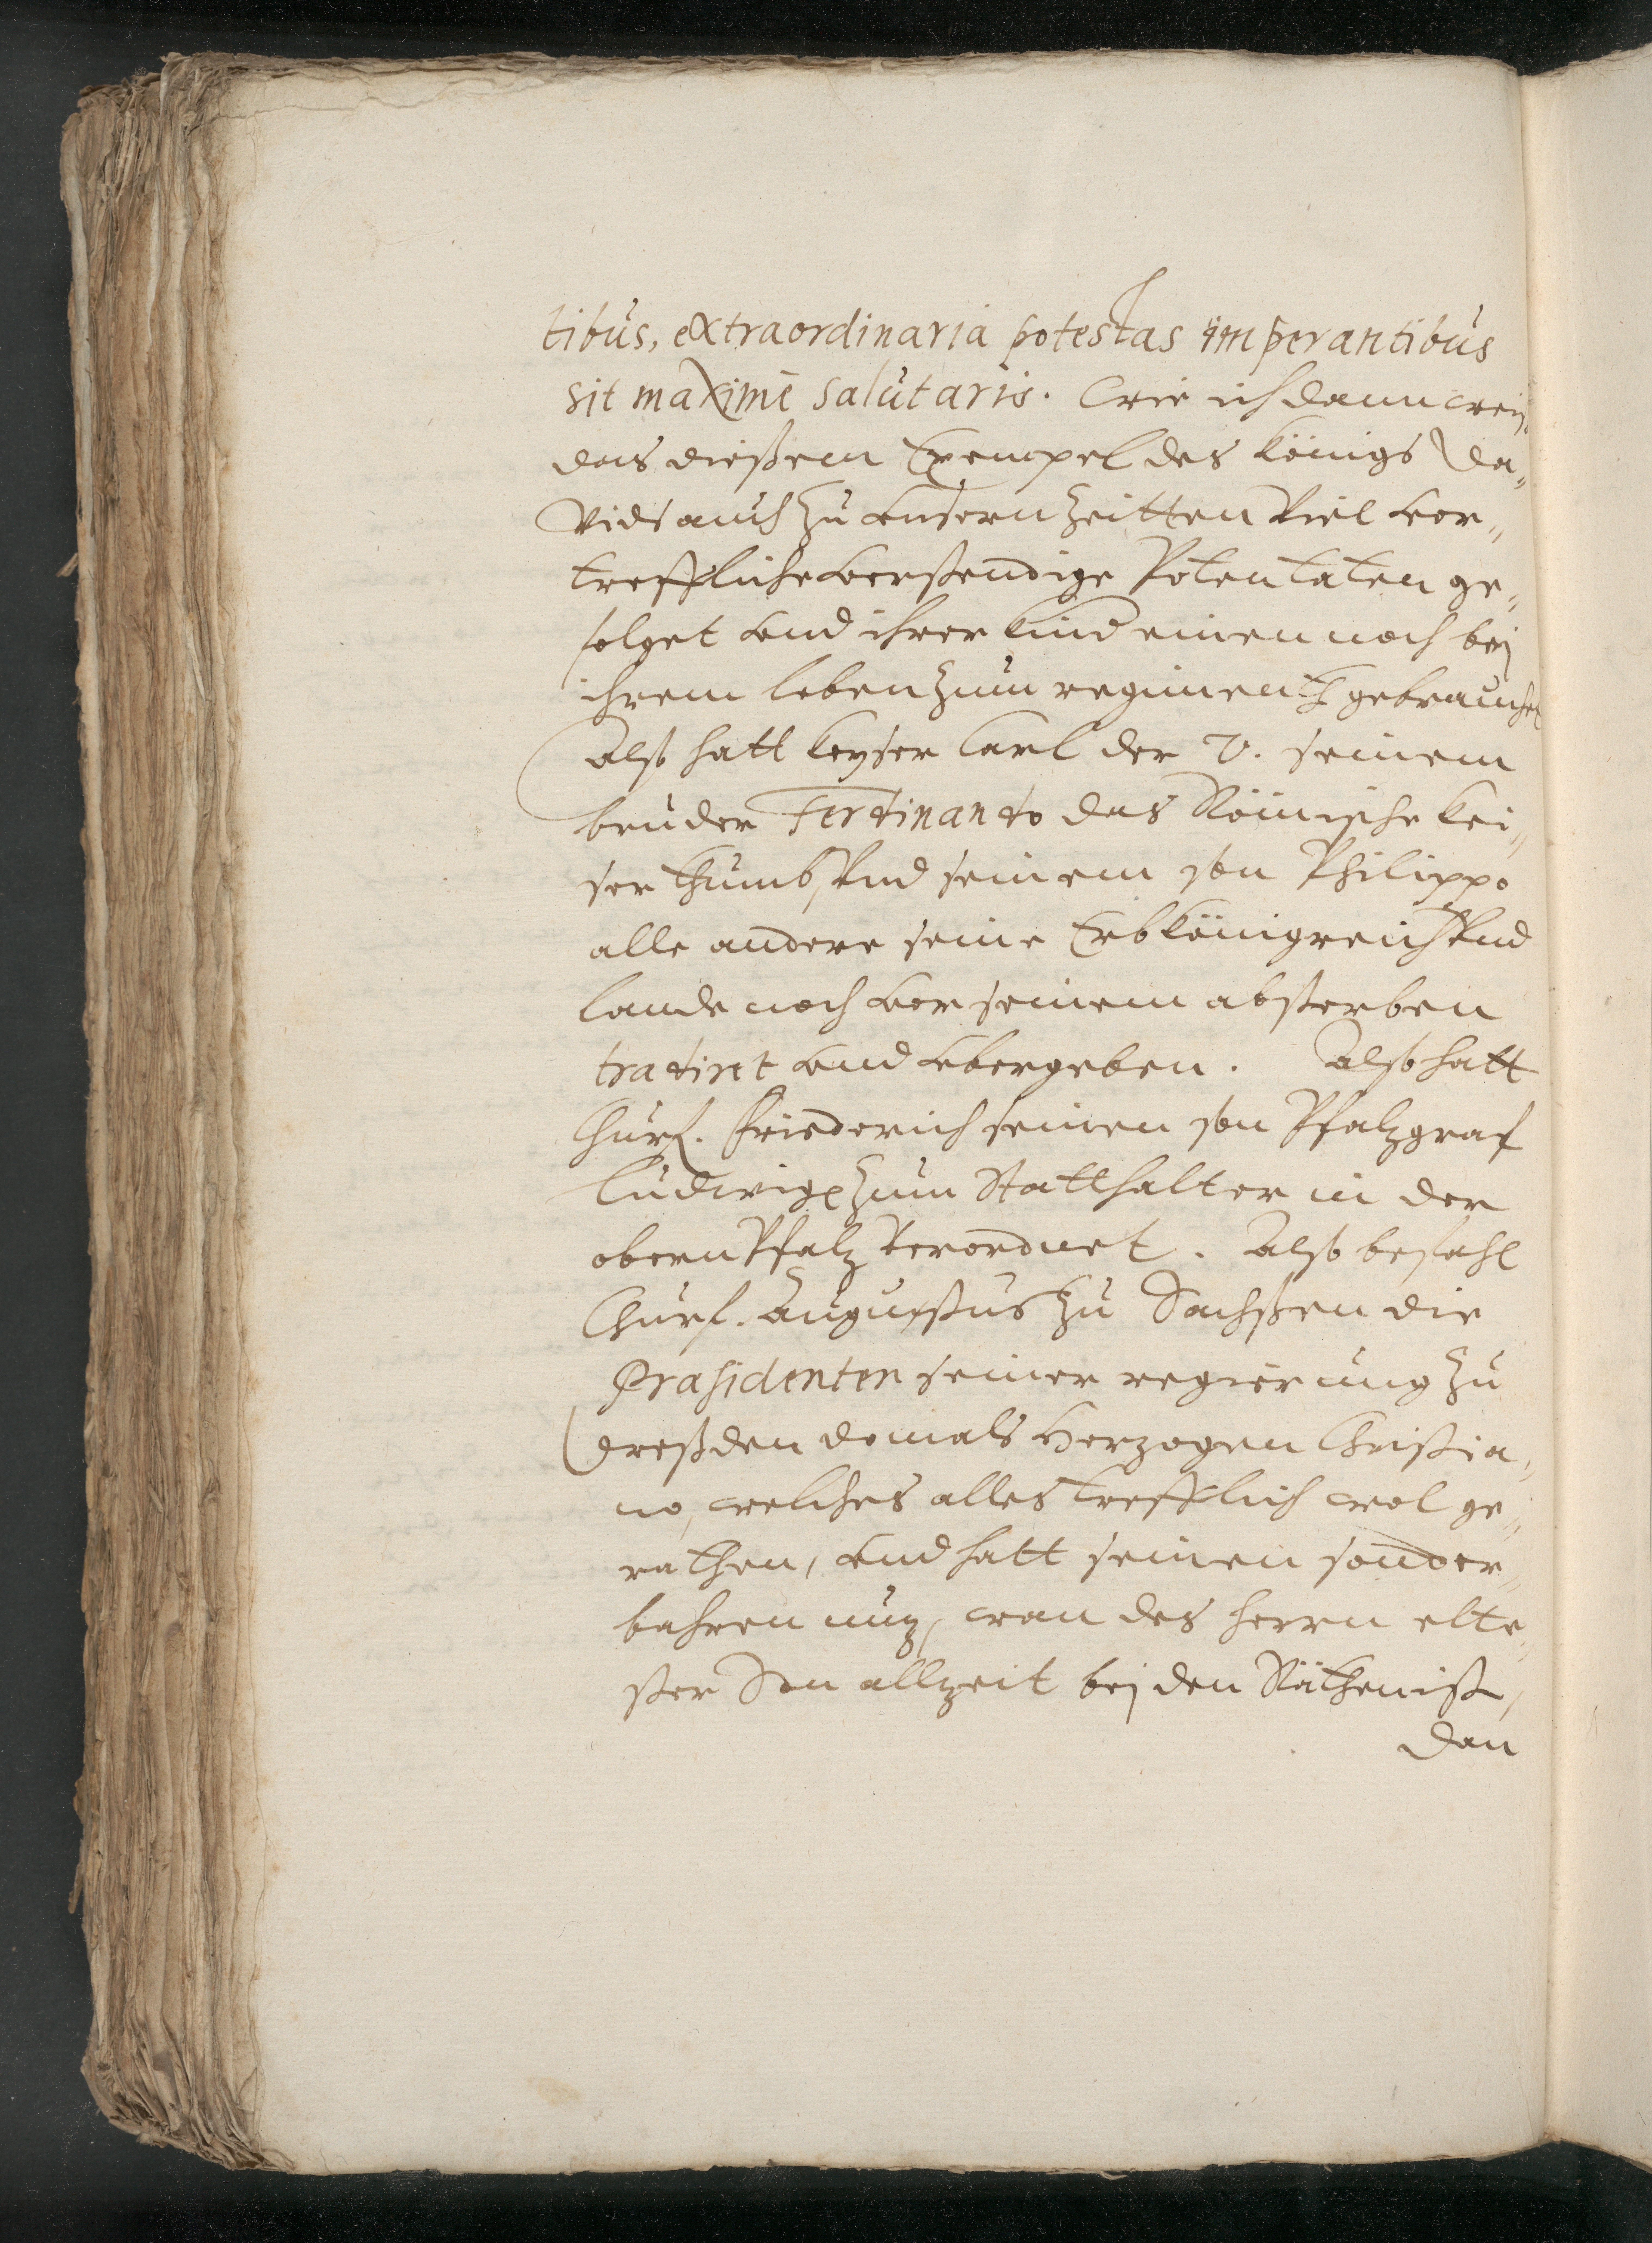 tibus, extraordinaria potestas imperantibus
sit maximè salutaris. Wie ich dann weis,
das dießem Exempel des Königs Da„
vids auch zu unsern Zeitten viel vor„
treffliche verstendige Potentaten ge„
folget und ihrer Kind einen noch bej
ihrem leben zum regiment gebrauchet
Also hatt Keyser Carl der V. seinem
bruder Ferdinando das Römische Kei„
serthumb, und seinem son Philippo
alle andere seine Erbkönigreich und
lande noch vor seinem absterben
tradiret und ubergeben. Also hatt
Churf. Friederich seinen son Pfalzgraf
Ludwigen zum Statthalter in der
obern Pfalz verordnet. Also befahl
Churf. Augustus zu Sachssen die
Præsidenten seiner regierung zu
Dreßden domals Herzogen Christia„
no, welches alles trefflich wol ge„
rathen, und hatt seinen sonder„
bahren nuz, wan des Herrn elte„
ster Son allzeit bej den Räthen ist,
Dan